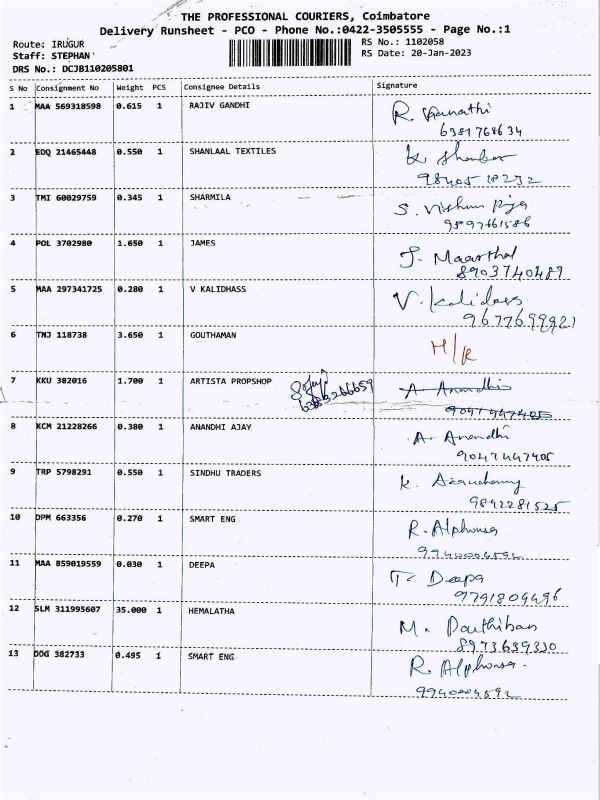 THE PROFESSIONAL COURIERS, Coimbatore
Delivery Runsheet - PCO - Phone No.:0422-3505555 - Page No.:1
Route: IRUGUR
Staff: STEPHAN
DRS No.: DCJB110205801
RS No.: 1102058
RS Date: 20-Jan-2023
S No Consignment No Weight PCS Consignee Details Signature
1 MAA 569318598 0.615 1 RAJIV GANDHI R.
6381768634
2 EDQ 21465448 0.550 1 SHANLAAL TEXTILES
3 TMI 60029759 0.345 1 SHARMILA S. Vishnu Priya
9597661586
4 POL 3702980 1.650 1 JAMES J. Maarthal
8903740489
5 MAA 297341725 0.280 1 V KALIDHASS V. Kalidass
9677699921
6 TNJ 118738 3.650 1 GOUTHAMAN
7 KKU 382016 1.700 1 ARTISTA PROPSHOP A Anandhi
8 KCM 21228266 0.380 1 ANANDHI AJAY A. Anandhi
9047447405
9 TRP 5798291 0.550 1 SINDHU TRADERS K.
9842281525
10 DPM 663356 0.270 1 SMART ENG R. Alphonsa
9940004592
11 MAA 859019559 0.030 1 DEEPA T. Deepa
9791809496
12 SLM 311995607 35.000 1 HEMALATHA M. Parthiban
8973639330
13 DOG 382733 0.495 1 SMART ENG R. Alphonsa
9940004592